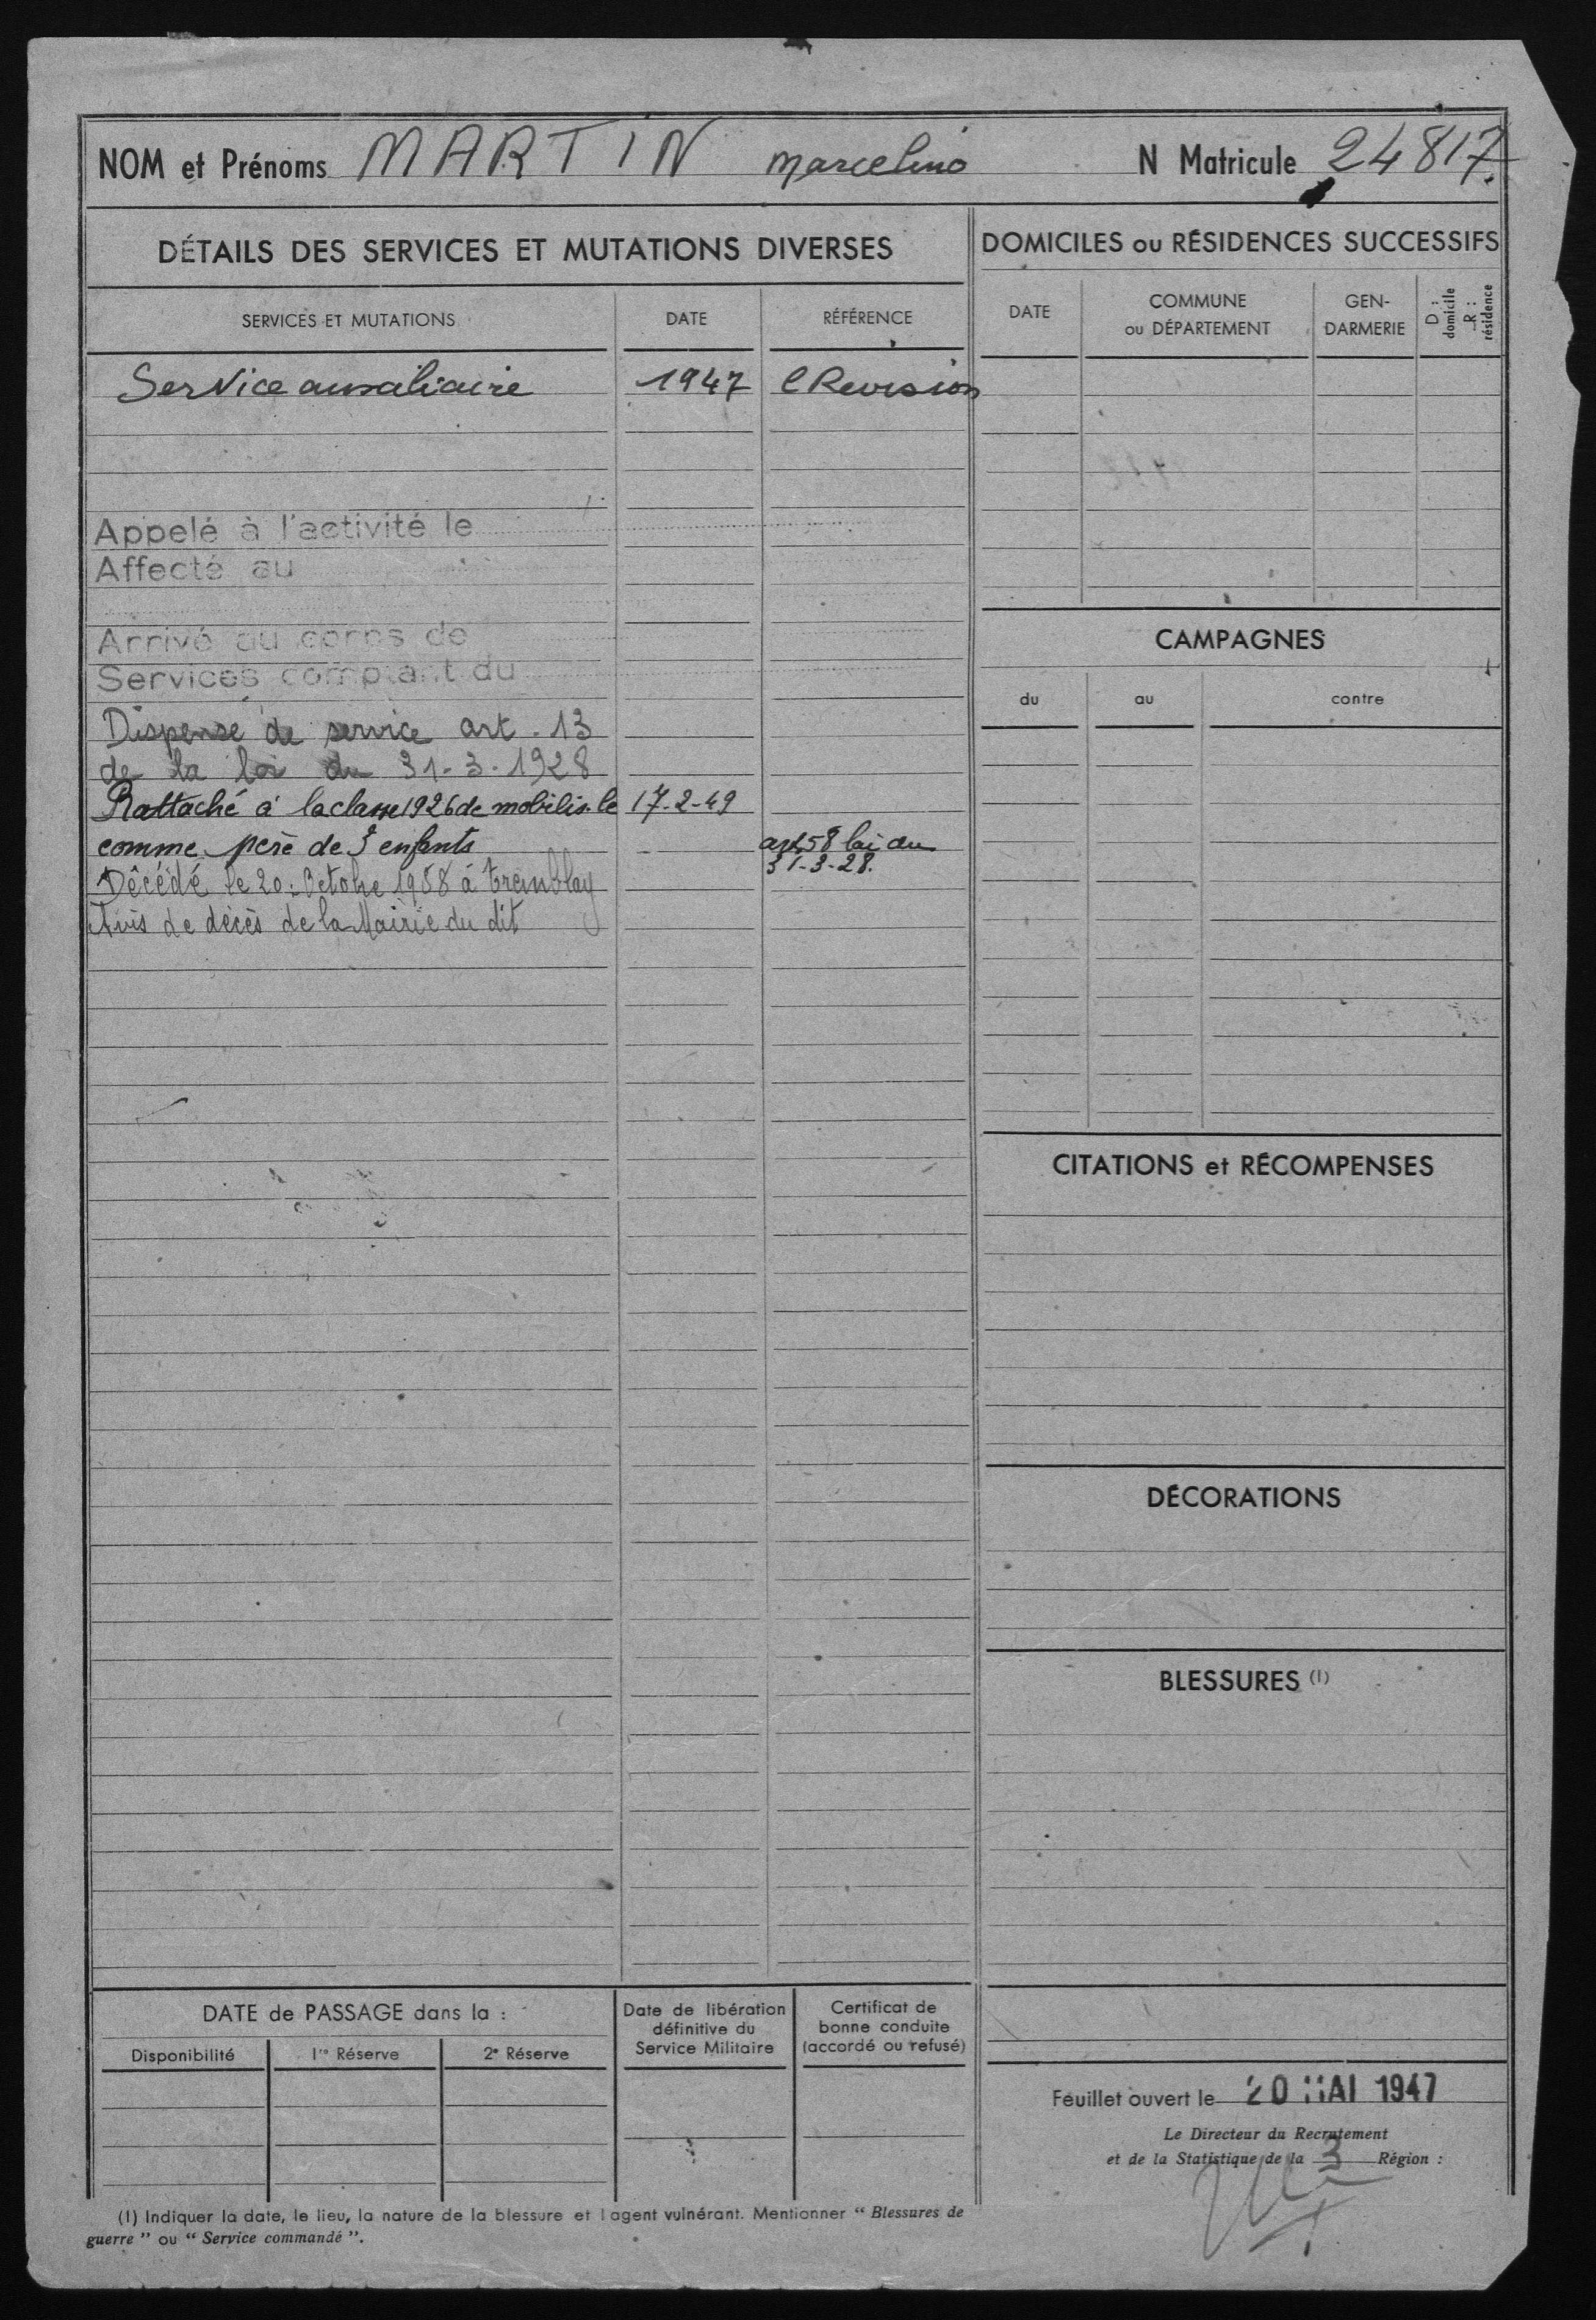 NOM et Prénoms MARTIN Marcelino N Matricule 24817
DÉTAILS DES SERVICES ET MUTATIONS DIVERSES
SERVICES ET MUTATIONS DATE RÉFÉRENCE
Service auxiliaire 1947 C Revision
Appelé à l'activité le
Affecté au
Arrivé au corps de
Services comptant du
Dispense de service art. 13
de la loi du 31-3-1928
Rattaché à la classe 1926 de mobilis. le 17-2-49
comme père de 3 enfants art 58 loi du
31-3-28.
Décédé le 20 Octobre 1958 à Tremblay
Avis de décès de la Mairie du dit
DOMICILES ou RÉSIDENCES SUCCESSIFS
DATE COMMUNE ou DÉPARTEMENT GEN-DARMERIE D : domicile R : résidence
CAMPAGNES
du au contre
CITATIONS et RÉCOMPENSES
DÉCORATIONS
BLESSURES (1)
DATE de PASSAGE dans la :
Disponibilité 1re Réserve 2e Réserve
Date de libération
définitive du
Service Militaire
Certificat de
bonne conduite
(accordé ou refusé)
Feuillet ouvert le 20 MAI 1947
Le Directeur du Recrutement
et de la Statistique de la 3 Région :
(1) Indiquer la date, le lieu, la nature de la blessure et l agent vulnérant. Mentionner “ Blessures de
guerre ” ou “ Service commandé ”.